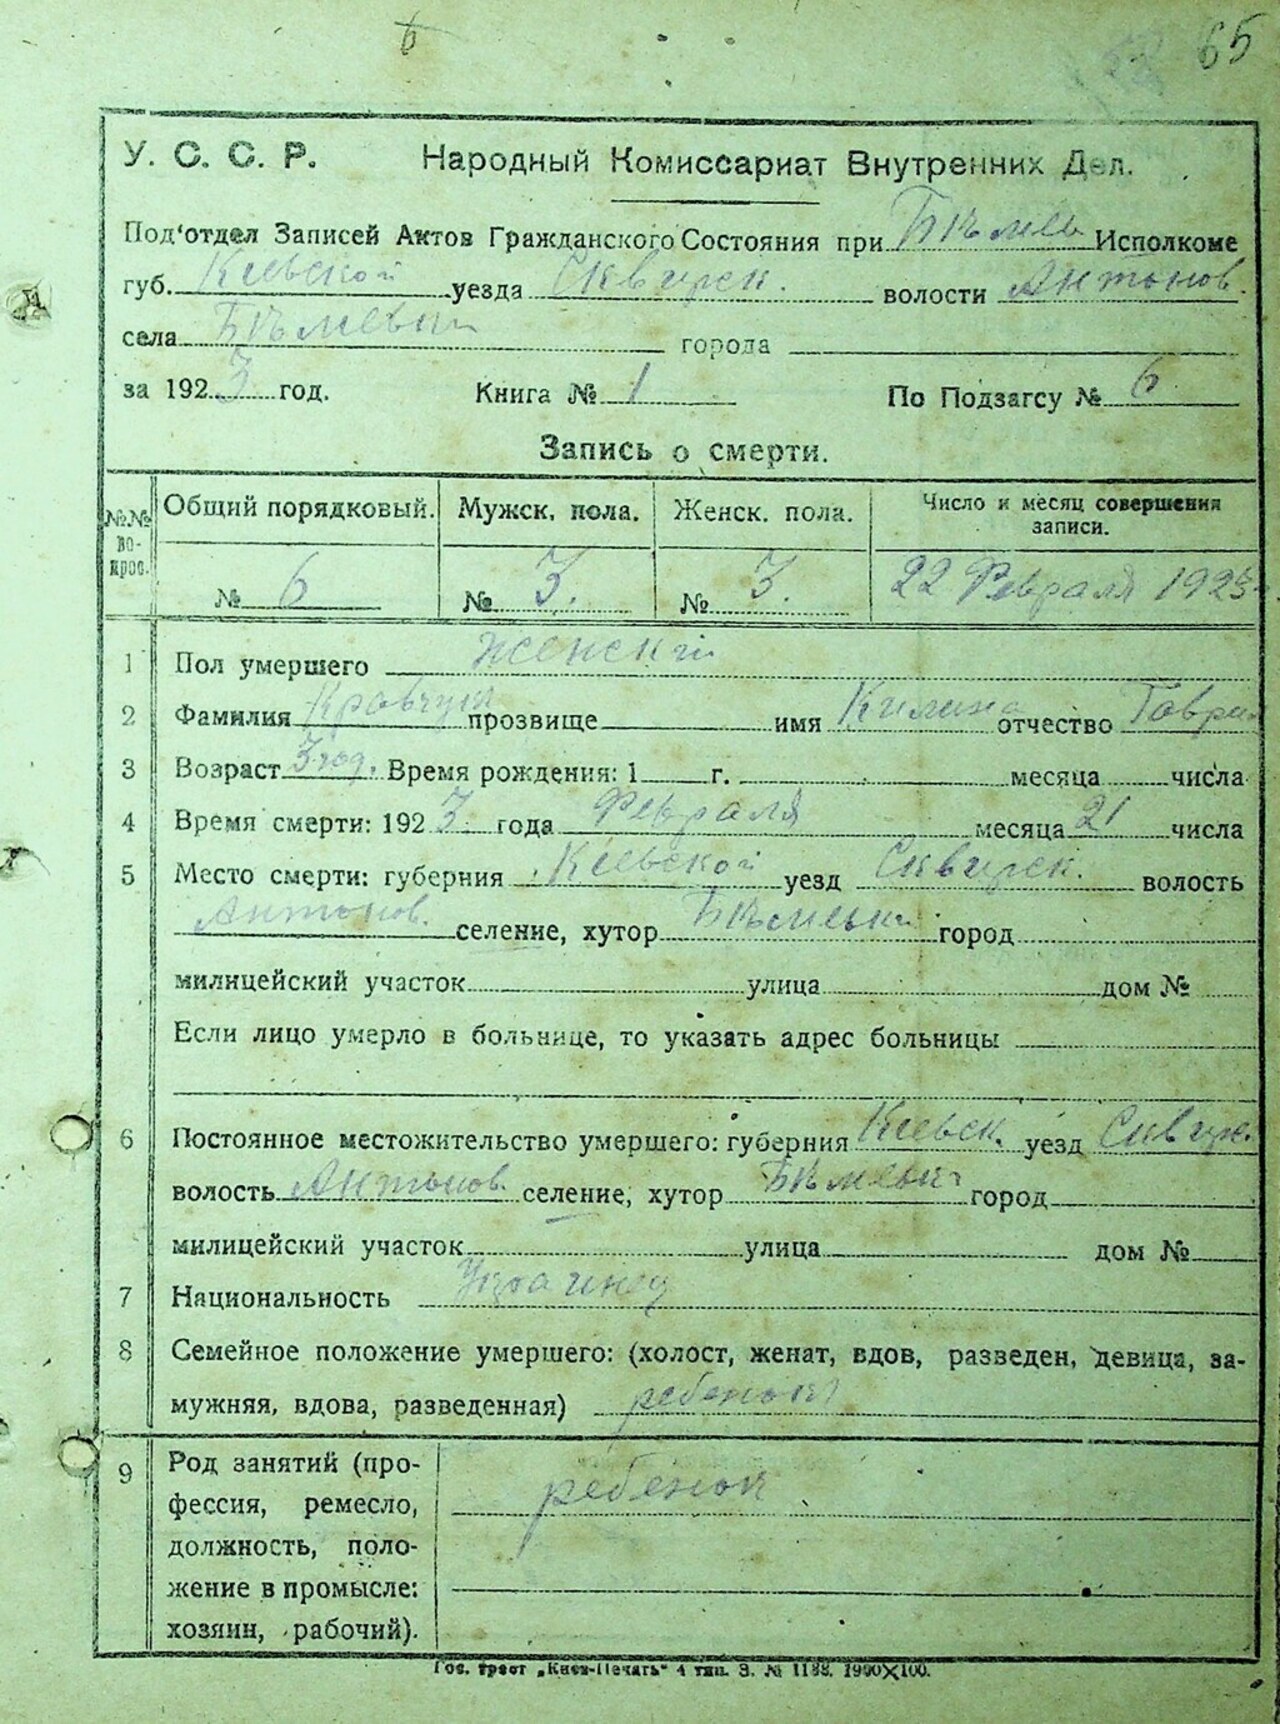 6 65
У. С. С. Р. Народный Комиссариат Внутренних Дел.
Под'отдел Записей Актов Гражданского Состояния при Исполкоме
губ. Киевской уезда Сквирск. волости Антонов.
села города
за 1923 год. Книга № 1 По Подзагсу № 6
Запись о смерти.
№№ во-прос. Общий порядковый. Мужск. пола. Женск. пола. Число и месяц совершения записи.
№ 6 № 3. № 3. 22 Февраля 1923
1 Пол умершего женский
2 Фамилия Кравчук прозвище имя Килина отчество Гаври
3 Возраст 3 год. Время рождения: 1 г. месяца числа
4 Время смерти: 1923 года Февраля месяца 21 числа
5 Место смерти: губерния Киевской уезд Сквирск. волость
Антонов. селение, хутор город
милицейский участок улица дом №
Если лицо умерло в больнице, то указать адрес больницы
6 Постоянное местожительство умершего: губерния Киевск. уезд Сквир.
волость Антонов. селение, хутор город
милицейский участок улица дом №
7 Национальность Украинец
8 Семейное положение умершего: (холост, женат, вдов, разведен, девица, за-
мужняя, вдова, разведенная) ребенок
9 Род занятий (про-
фессия, ремесло, ребенок
должность, поло-
жение в промысле:
хозяин, рабочий).
Гос. трест „Киев-Печать" 4 тип. З. № 1188. 1900×100.